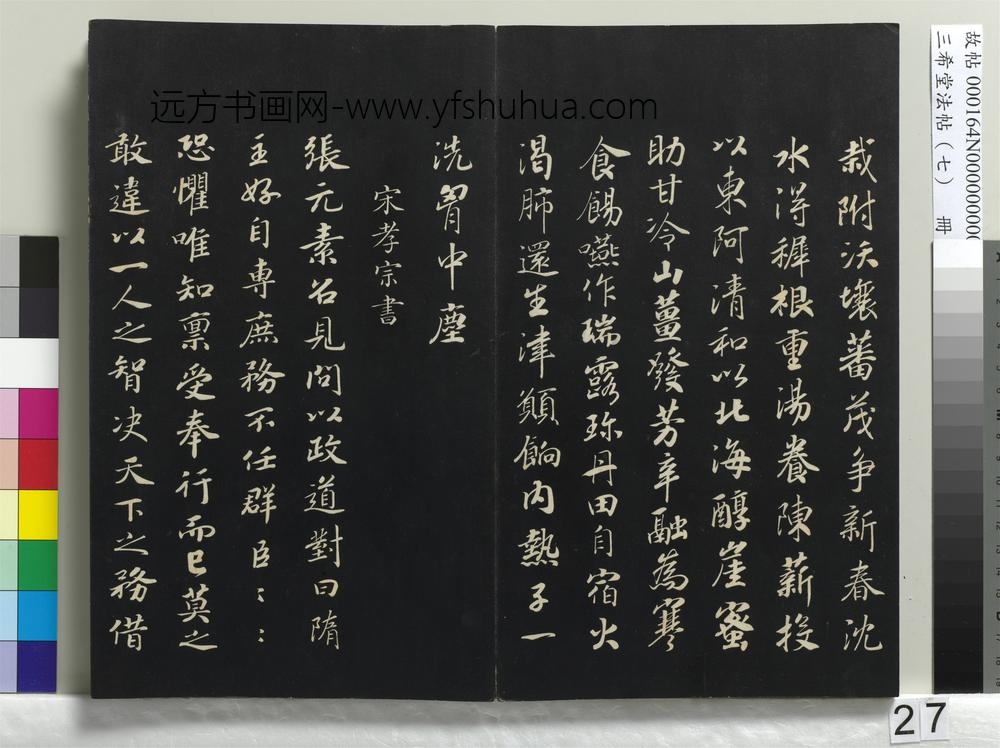 远方书画网-www.yfshuhua.com
栽附沃壤蕃茂争新春沈
水得穉根重湯養陳薪投
以東阿清和以北海醇崖蜜
助甘冷山薑發芳辛融為寒
食餳嚥作瑞露珎丹田自宿火
渴肺還生津願餉内熱子一
洗胷中塵
宋孝宗書
張元素召見問以政道對曰隋
主好自專庶務不任群臣〻〻
恐懼唯知稟受奉行而已莫之
敢違以一人之智决天下之務借
故帖 000164N00000000
三希堂法帖(七) 册
27